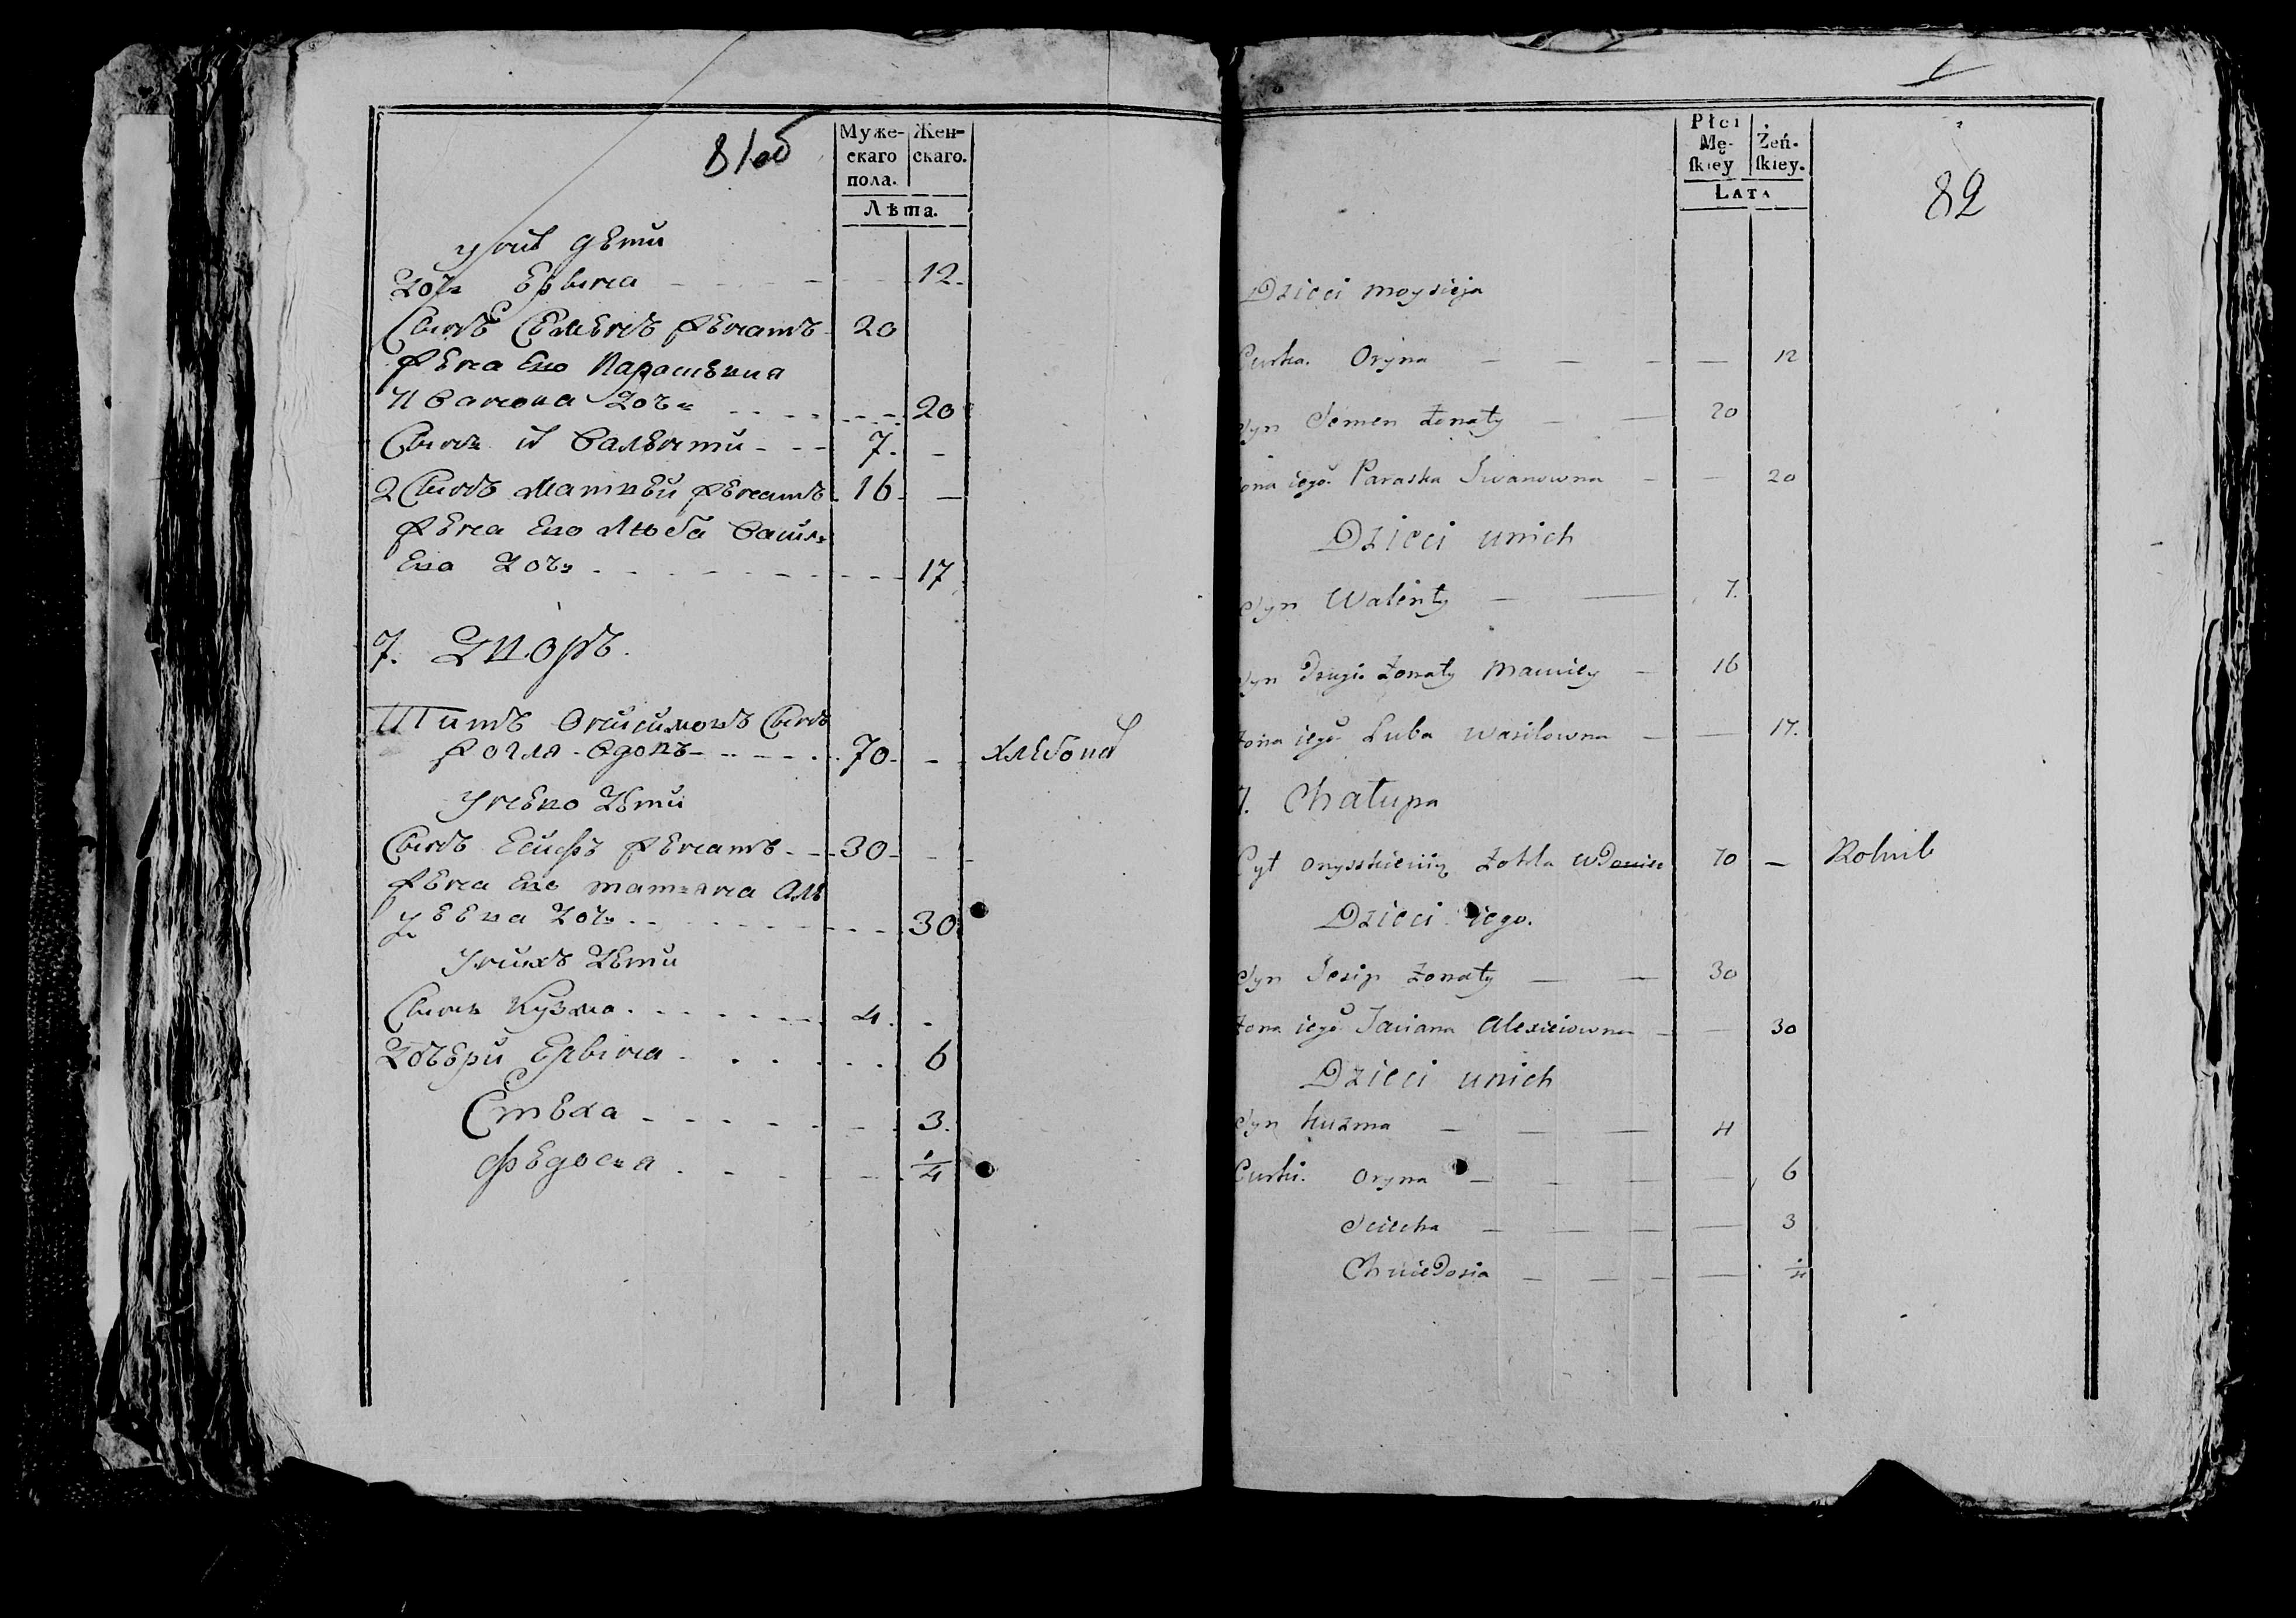 81об
Муже- Жен-
скаго скаго.
пола.
Лѣта.
у них дети
Дочь Ерына 12.
Сынъ Семенъ женатъ 20
жена ево Парасьвия
Иванова дочь 20
Сынъ Валенти 7.
2 Сынъ Матвей женатъ 16
жена ево Люба Василь
ева дочь 17
7. Дворъ.
Титъ Онисимовъ сынъ
вдовъ 70 хлебопа
У нево дети
Сынъ Есифъ женатъ 30
жена ево татьяна Але
дочь 30
У нихъ дети
Сынъ Кузма 4.
Дочери Ерына 6
Стеха 3.
Федосья 1/4
Płci Żeń-
Mę- ſkiey.
ſkiey
LATA
82
Dzieci Moysieja
Curka. Oryna 12
Syn Semen Żonaty 20
Żona iego Paraska Iwanowna 20
Dzieci unich
Syn Walenty 7.
Syn Drugi Żonaty Mawiey 16
Żona iego Luba Wasilowna 17.
7. Chałupa
Cyt Żohla 70 — Rolnik
Dzieci iego.
Syn Jesip Żonaty 30
Żona iego Taciana Alexieiowna 30
Dzieci unich
Syn Kuzma 4
Curki. Oryna 6
Sciecha 3
Chwiedosia 1/4